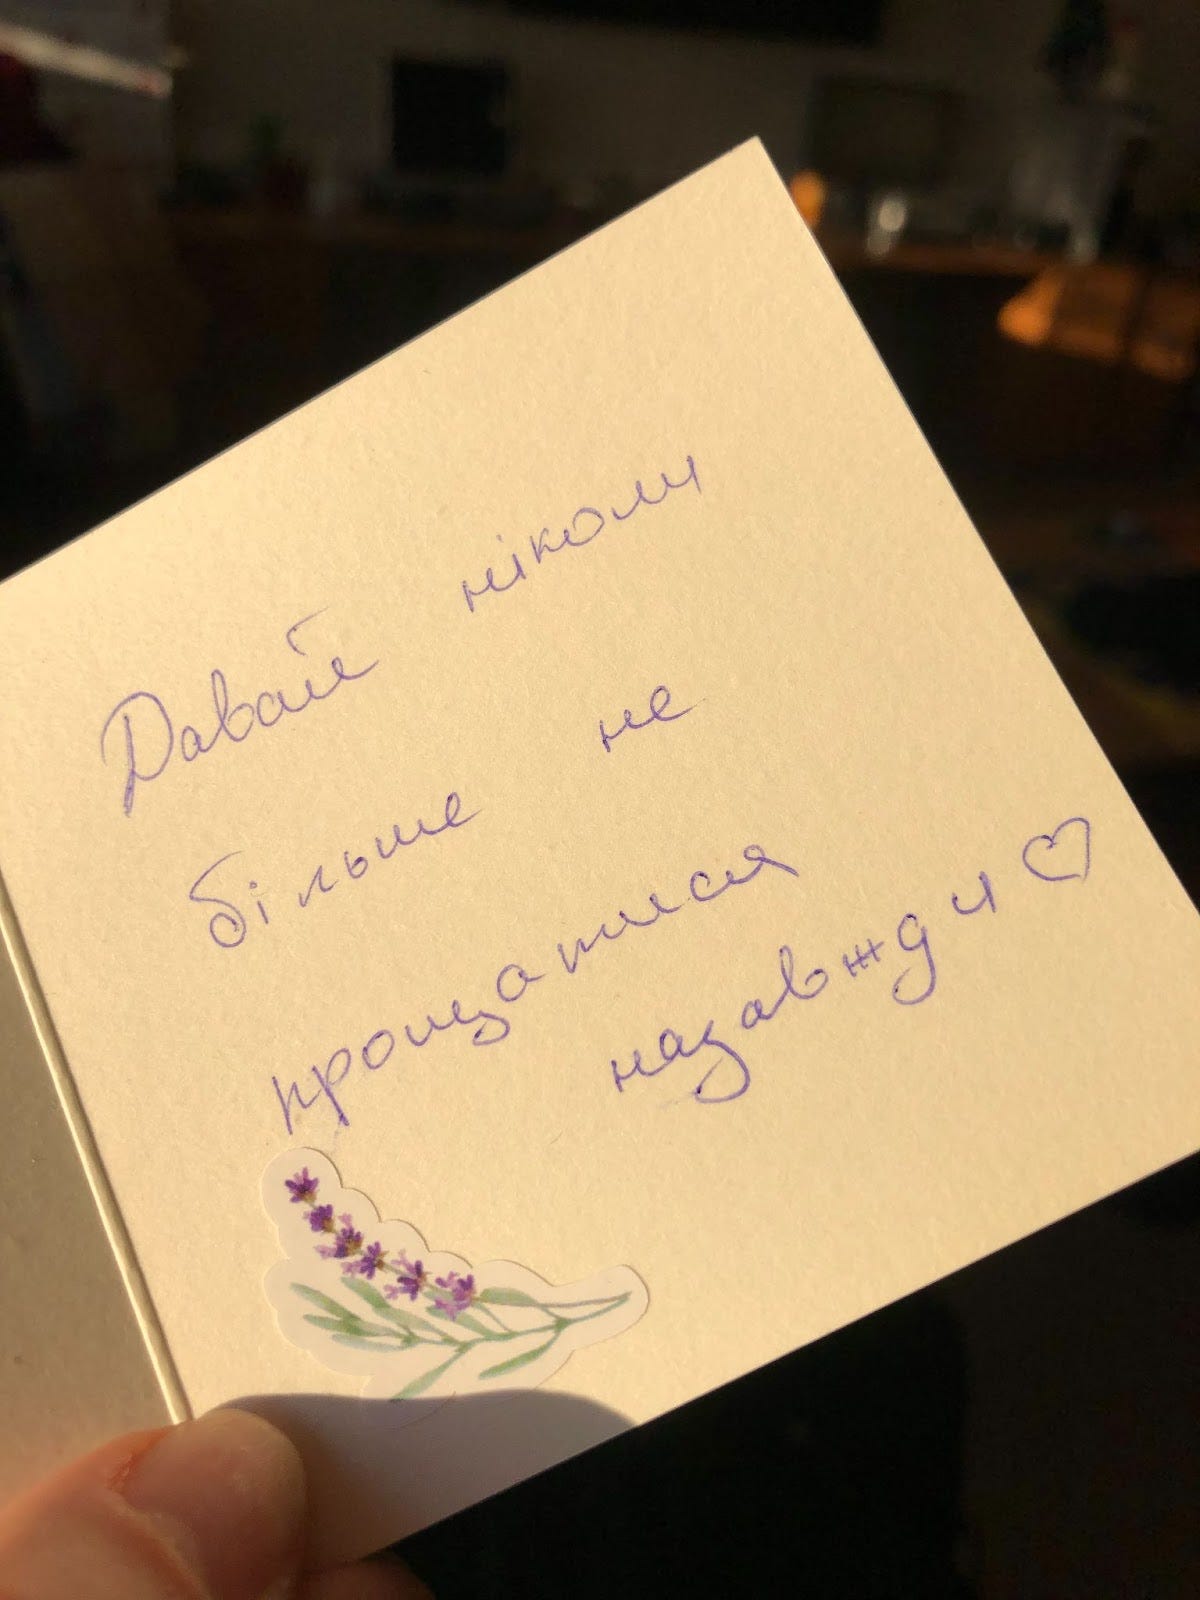 Давай ніколи
більше не
прощатися
назавжди ♡